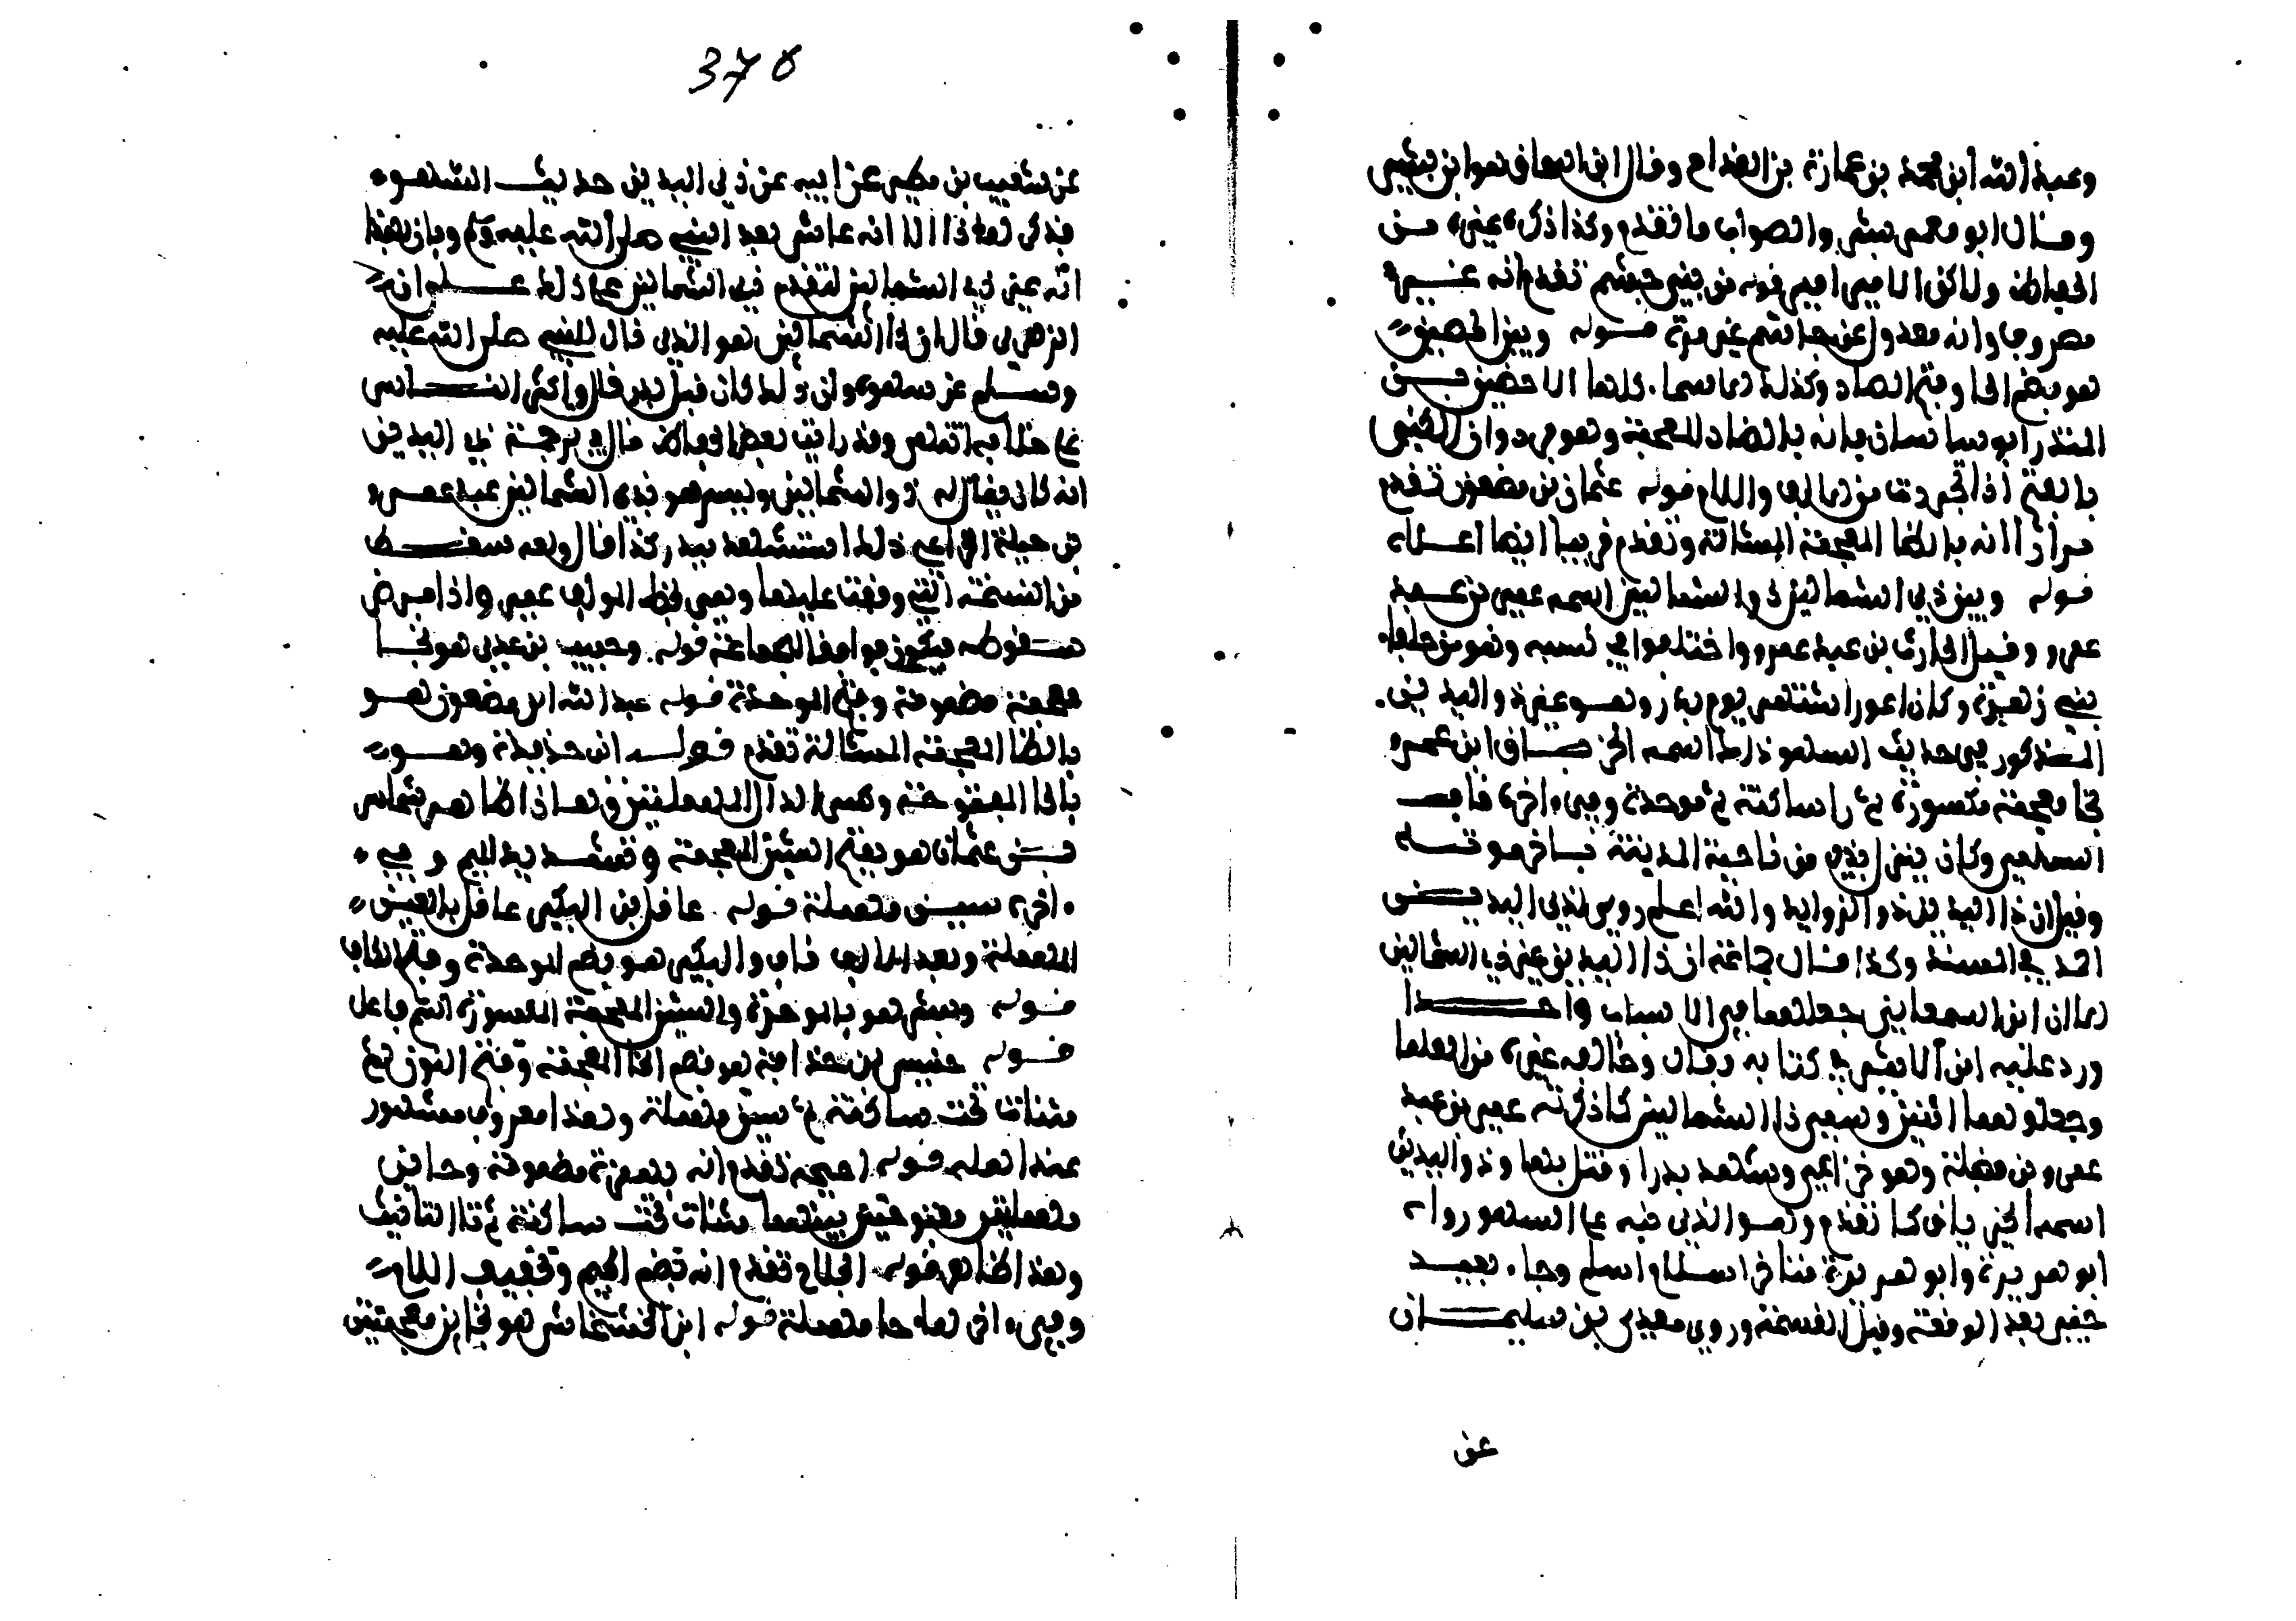 وعبد الله ابن محمد بن عمارة بن القداح وقال ابن اسحاق هو ابن بشير
وقال ابو معمر بشر والصواب ما تقدم وكذا ذكره غيره من
الحفاظ ولاكن الامير امير قوله من بني جشم تقدم انه غير
مصروف وانه معدول عن جاشم غير مرة قوله وبين الحصين
هو بضم الحا وفتح الصاد وكذلك الاسما كلها الا حضين بن
المنذر ابو ساسان فانه بالضاد المعجمة وهو فرد وان الكنى
بالفتح اذا تجردت من الالف واللام قوله عثمان بن مضعون تقدم
مرارا انه بالظا المعجمة المشالة وتقدم قريبا ايضا اعلاه
قوله وبين ذي الشمالين ذو الشمالين اسمه عمير بن عبد
عمرو وقيل الحارث بن عبد عمرو واختلفوا في نسبه وهو من حلفاء
بني زهرة وكان اعور استشهد يوم بدر وهو غير ذو اليدين
المذكور في حديث السهو ذاك اسمه الخرباق ابن عمرو
بخا معجمة مكسورة ثم را ساكنة ثم موحدة وفي اخره قاف
السلمي وكان ينزل بذي من ناحية المدينة
وقيل ان ذا اليدين ذو الزوايد والله اعلم روى لذي اليدين
احمد في المسند وكذا قال جماعة ان ذا اليدين غير ذي الشمالين
كما ان ابن السمعاني جعلهما في الانساب واحدا
ورد عليه ابن الاثير في كتابه وقال وخالفه غيره من العلما
وجعلوهما اثنين وسمي ذا الشمالين كما ذكرته عمير بن عبد
عمرو بن نضلة وهو خزاعي وشهد بدرا وقتل بها وذو اليدين
اسمه الخرباق كما تقدم وهو الذي نبه على السهو رواه
ابو هريرة وابو هريرة متاخر اسلام اسلم وجاء بعيد
خيبر بعد الوقعة وقبل القسمة وروى معدي بن سليمان
عن
378
عن شعيب بن مطير عن ابيه عن ذي اليدين حديث السهو
فدل هذا الا انه عاش بعد النبي صلى الله عليه وسلم وبان بهذا
انه غير ذي الشمالين لتقدم ذي الشمالين على ذلك على ان
الزهري قال ان ذا الشمالين هو الذي قال للنبي صلى الله عليه
وسلم عن سهوه وان ذلك كان قبل بدر قال واكثر الناس
على خلافه انتهى وقد رايت بعض الحفاظ قال في ترجمة ذي اليدين
انه كان يقال له ذو الشمالين وليس هو بذي الشمالين عبد عمرو
بن نضلة الخزاعي ذلك استشهد ببدر كذا قال ولعه سقط
من النسخة التي وقفت عليها وهي بخط المولف عمير واذا فرض
سقوطه فيكون موافقا للجماعة قوله وخبيب بن عدي هو بخا
معجمة مضمومة وفتح الموحدة قوله عبد الله ابن مضعون هو
بالظا المعجمة المشالة تقدم قوله ابن حذيفة وهو
بالحا المفتوحة وكسر الذال المهملتين وهذا الظاهر شماس
بن عثمان هو بفتح الشين المعجمة وتشديد الميم وفي
اخره سين مهملة قوله عاقل بن البكير عاقل بالعين
المهملة وبعد الالف قاف والبكير هو بضم الموحدة وفتح الكاف
قوله وبشر هو بالموحدة والشين المعجمة المكسورة اسم فاعل
قوله خنيس بن حذافة هو بضم الخا المعجمة وفتح النون ثم
مثنات تحت ساكنة ثم سين مهملة وهذا معروف مشهور
عند اهله قوله احيحة تقدم انه بهمزة مضمومة وحاين
مهملتين مفتوحتين بينهما مثنات تحت ساكنة ثم تا التانيث
وهذا ظاهر قوله الجلاح تقدم انه بضم الجيم وتخفيف اللام
وفي اخرها حا مهملة قوله ابن الخشخاش هو بخاين معجمتين